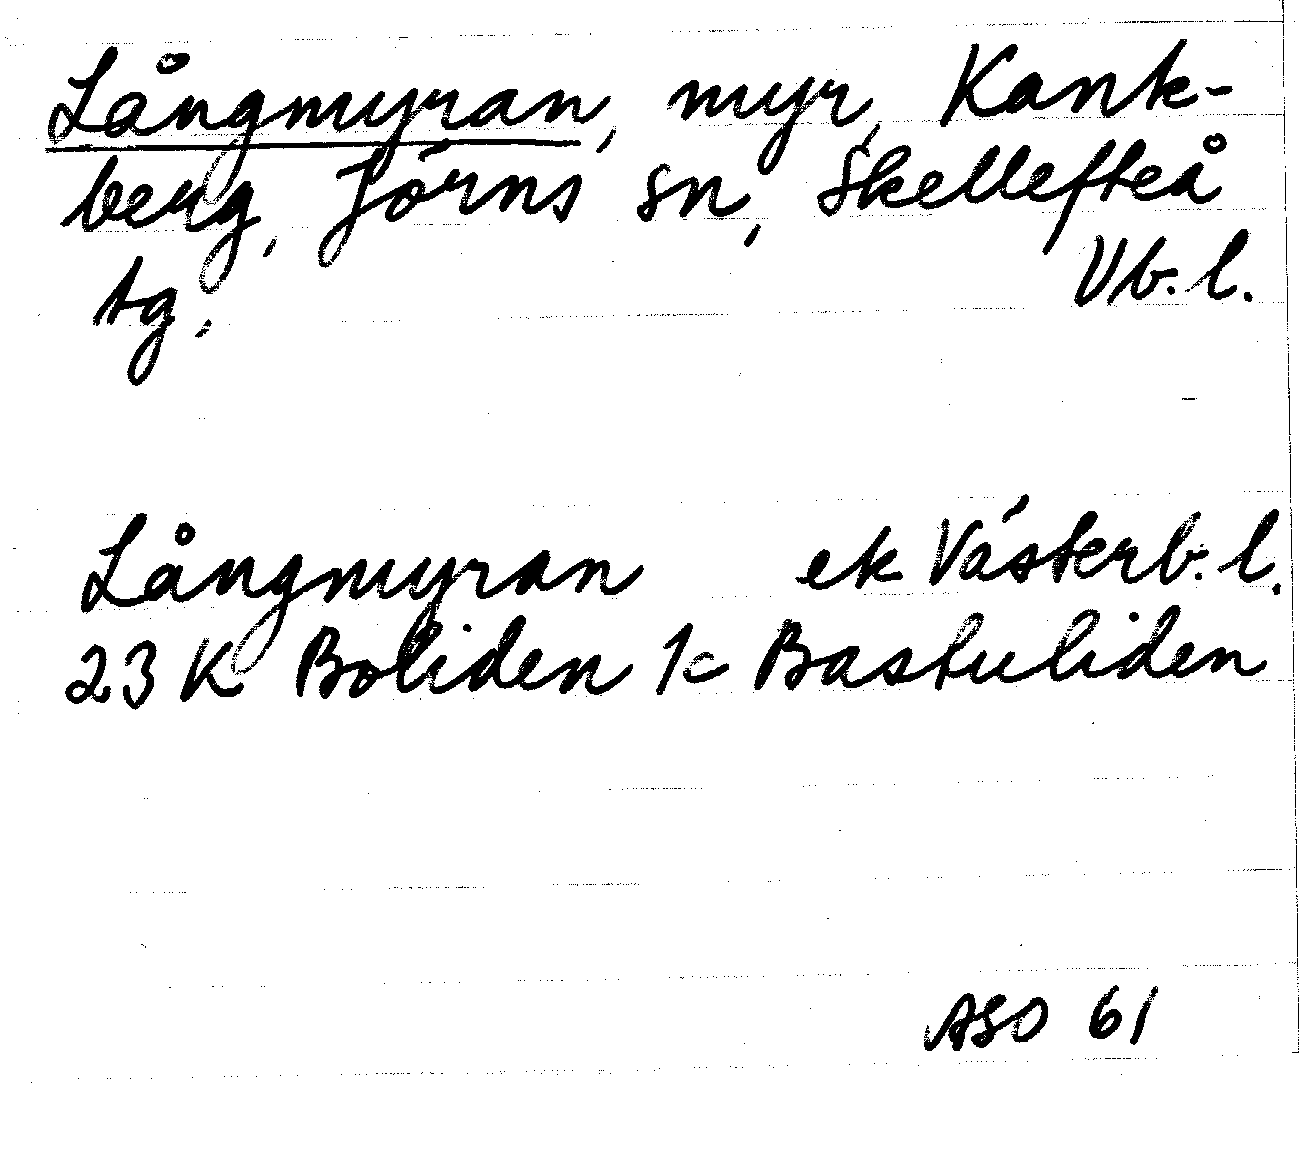 Långmyran, myr, Kank-
berg, Jörns sn, Skellefteå
tg. Vb. l.
Långmyran ek Västerb. l.
23 K Boliden 1c Bastuliden
ASO 61